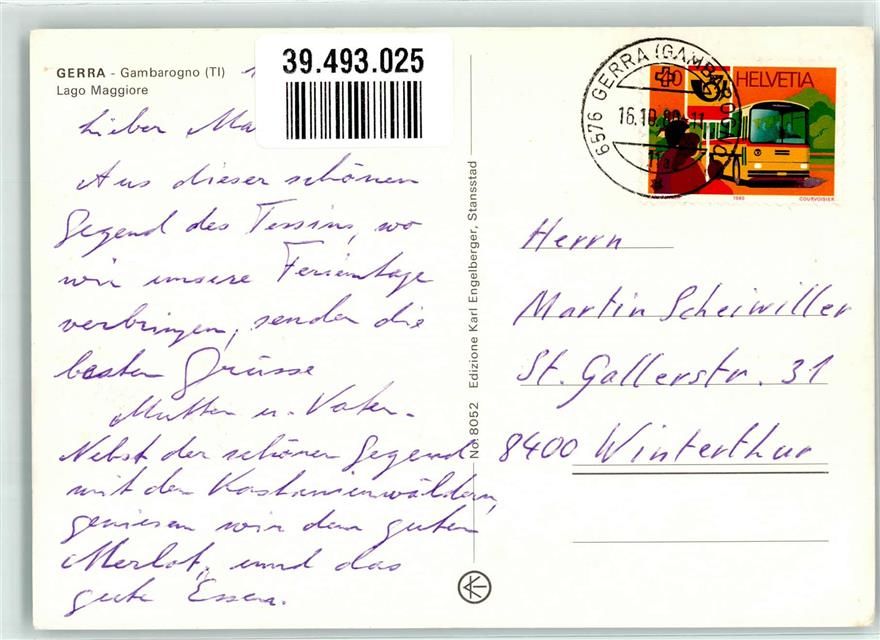 GERRA - Gambarogno (TI)
Lago Maggiore
39.493.025
Lieber
Aus dieser schönen
Gegend des Tessins, wo
wir unsere Ferientage
verbringen, senden die
besten Grüsse
Mutter u. Vater.
Nebst der schönen Gegend
mit den Kastanienwäldern,
geniesen wir den guten
Merlot, und das
gute Essen.
No. 8052 Edizione Karl Engelberger, Stansstad
6576 GERRA (GAMBAROGNO)
16.10.80-11
40
HELVETIA
1980
COURVOISIER
Herrn
Martin Scheiwiller
St. Gallerstr. 31
8400 Winterthur